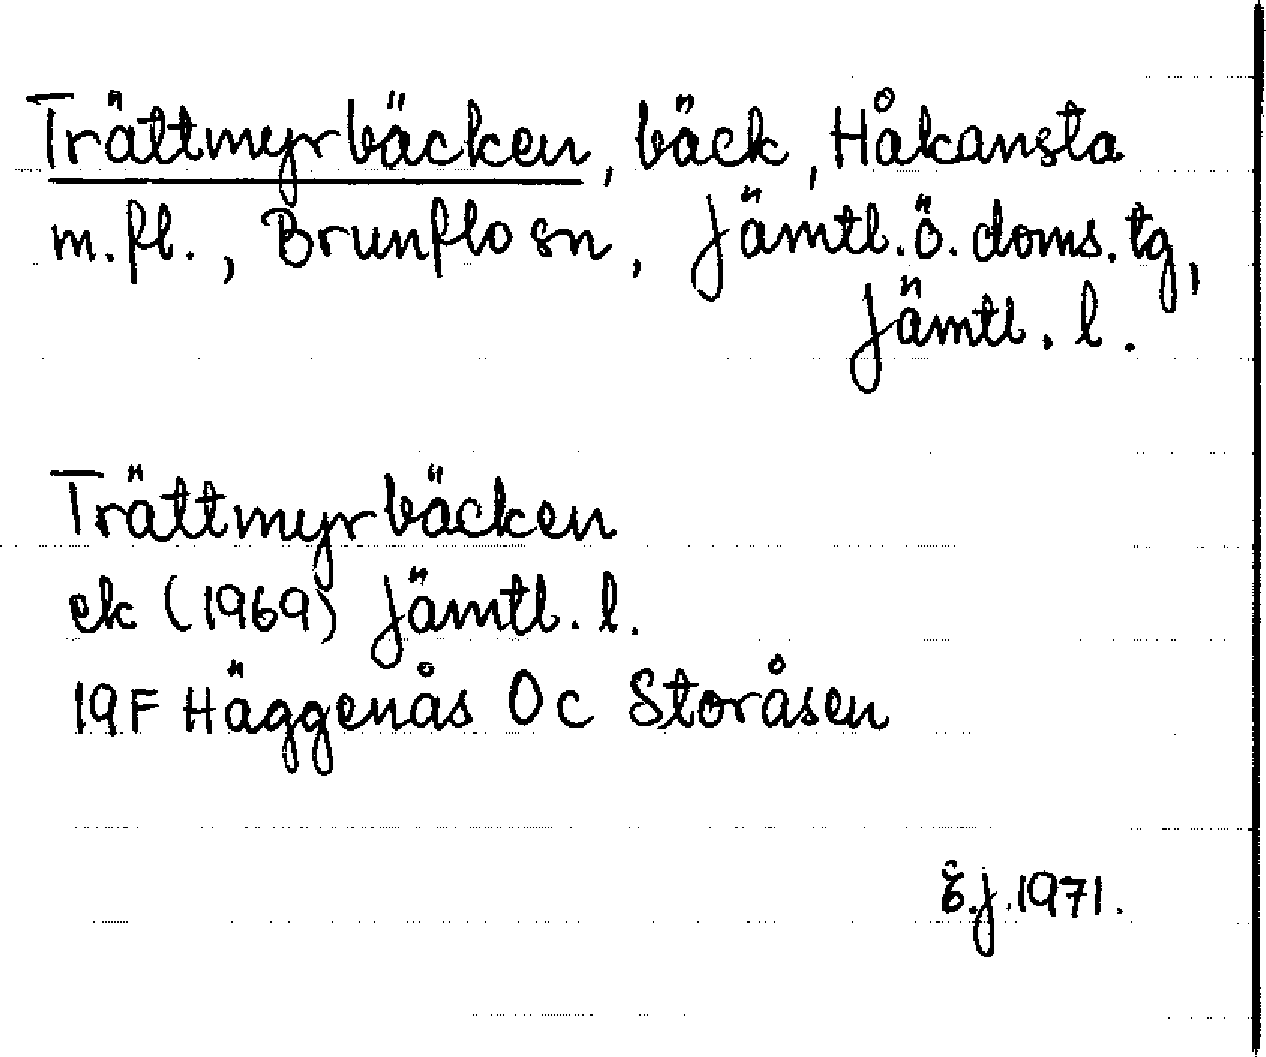 Trättmyrbäcken, bäck, Håkansta
m.fl., Brunflo sn, Jämtl. ö. doms. tg,
Jämtl. l.
Trättmyrbäcken
ek (1969) Jämtl. l.
19F Häggenås 0c Storåsen
J. 1971.